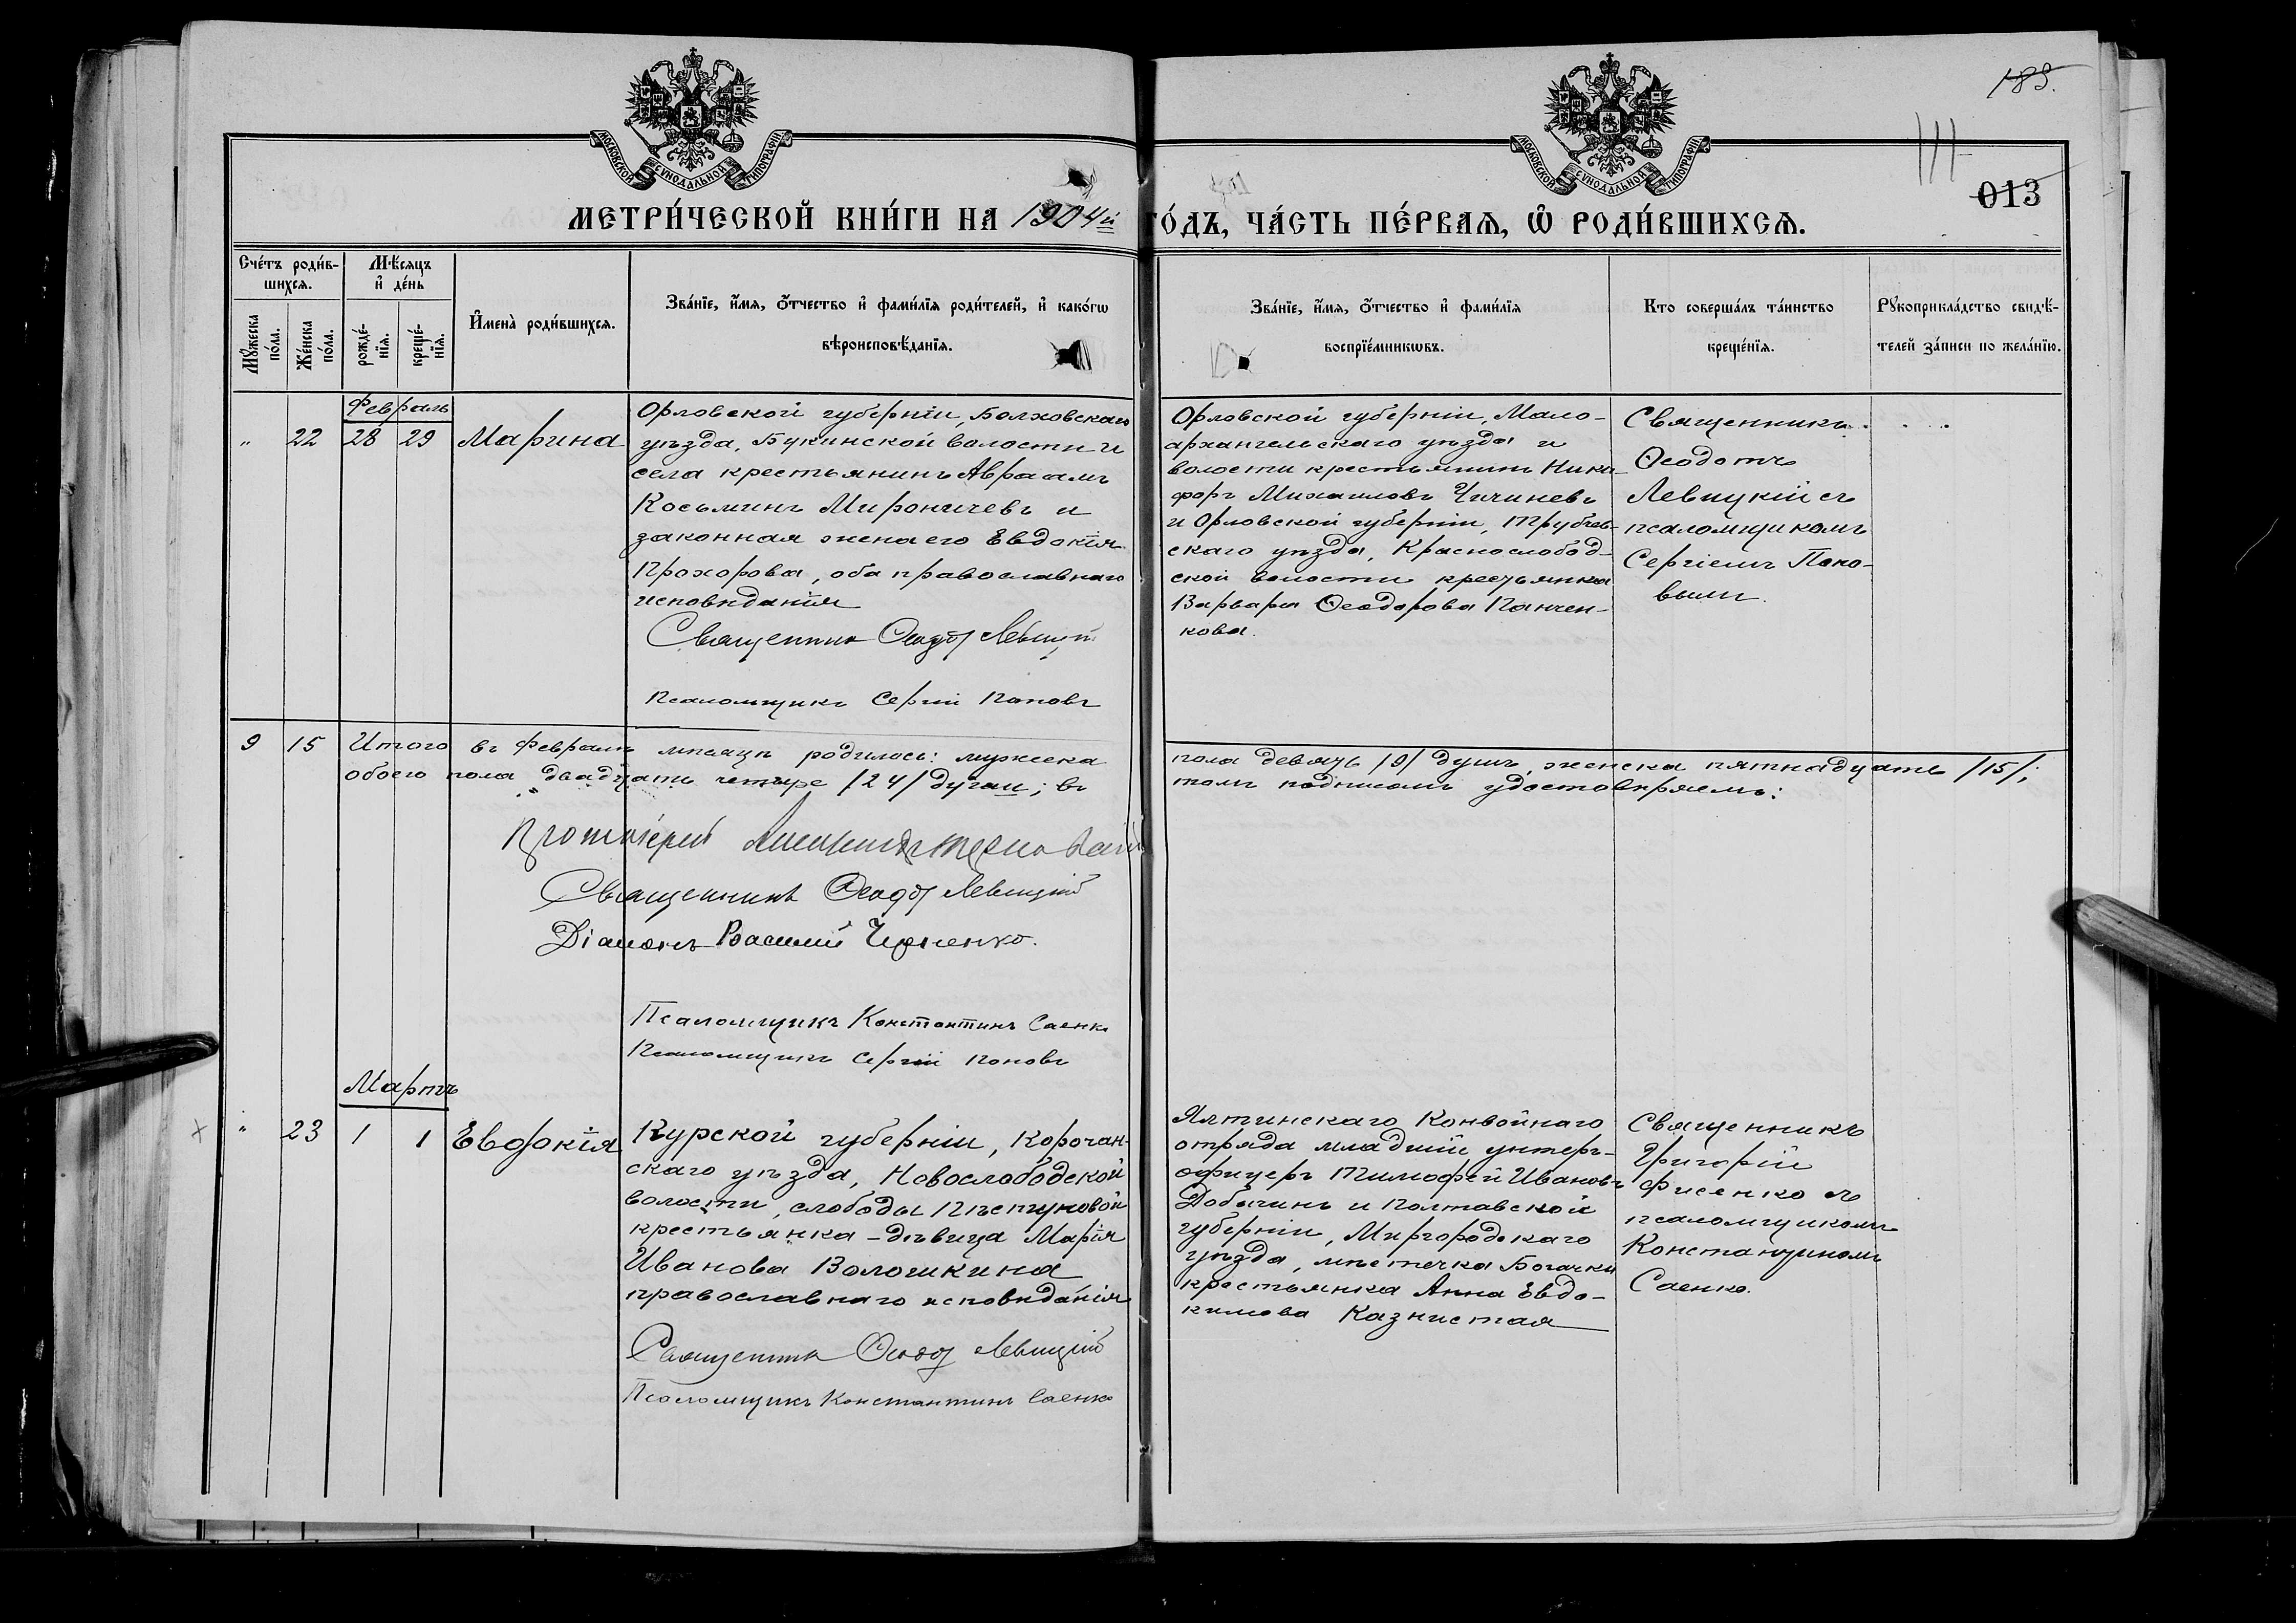 183.
013
МОСКОВСКОЙ СѴНОДАЛЬНОЙ ТИПОГРАФІИ
МОСКОВСКОЙ СѴНОДАЛЬНОЙ ТИПОГРАФІИ
МЕТРИ́ЧЕСКОЙ КНИ́ГИ НА 1904й ГО́ДЪ, ЧА́СТЬ ПЕ́РВАѦ, Ѡ РОДИ́ВШИХСѦ.
Сче́тъ роди́в-
шихсѧ.
Мꙋ́жеска по́ла.
Же́нска по́ла.
Мѣ́сѧцъ и де́нь
рожде́-
нїѧ.
креще́-
нїѧ.
Имена̀ роди́вшихсѧ.
Зва́нїе, и́мѧ, о́тчество и фами́лїѧ роди́телей, и како́гѡ
вѣроисповѣ́данїѧ.
Зва́нїе, и́мѧ, о́тчество и фами́лїѧ
воспрїе́мникѡвъ.
Кто совершалъ та́инство
креще́нїѧ.
Рꙋкоприкла́дство свидѣ́-
телей за́писи по жела́нїю.
Февраль
" 22 28 29 Марина
Орловской губерніи, Болховскаго
уѣзда, Букинской волости и
села крестьянинъ Авраамъ
Косьминъ Мироничевъ и
законная жена его Евдокія
Прохорова, оба православнаго
исповѣданія
Священникъ Ѳеодотъ Левицкій
Псаломщикъ Сергій Поповъ
Орловской губерніи, Мало-
архангельскаго уѣзда и
волости крестьянинъ Ники-
форъ Михаиловъ Чичиневъ
и Орловской губерніи, Трубчев-
скаго уѣзда, Краснослобод-
ской волости крестьянка
Варвара Ѳеодорова Панчен-
кова.
Священникъ
Ѳеодотъ
Левицкій съ
псаломщикомъ
Сергіемъ Попо-
вымъ.
9 15 Итого въ Февралѣ мѣсяцѣ родилось: мужеска пола девять /9/ душъ, женска пятнадцать /15/;
обоего пола двадцать четыре /24/ души; въ томъ подписомъ удостовѣряемъ:
Протоіерей Терновскій
Священникъ Ѳеодотъ Левицкій
Діаконъ Василій Черненко.
Псаломщикъ Константинъ Саенко
Псаломщикъ Сергій Поповъ
Мартъ
" 23 1 1 Евдокія
Курской губерніи, Корочан-
скаго уѣзда, Новослободской
волости, слободы Пѣстуновой
крестьянка-дѣвица Марія
Иванова Волошкина
православнаго исповѣданія
Священникъ Ѳеодотъ Левицкій
Псаломщикъ Константинъ Саенко
Ялтинскаго Конвойнаго
отряда младшій унтеръ-
офицеръ Тимофей Ивановъ
Добычинъ и Полтавской
губерніи, Миргородскаго
уѣзда, мѣстечка Богачки
крестьянка Анна Евдо-
кимова Казнистая
Священникъ
Григорій
Фисенко съ
псаломщикомъ
Константиномъ
Саенко.